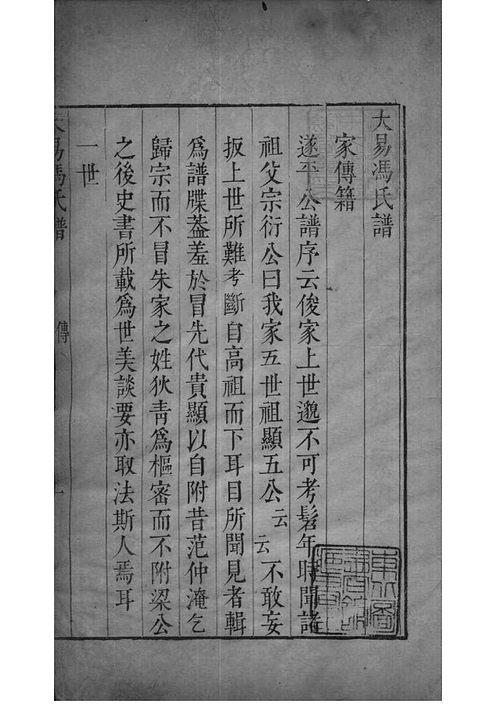 大易馮氏譜
家傳籍
遂平公譜序云俊家上世邈不可考髫年時聞諸
祖父宗衍公曰我家五世祖顯五公云云不敢妄
扳上世所難考斷自高祖而下耳目所聞見者輯
爲譜牒葢羞於冒先代貴顯以自附昔范仲淹乞
歸宗而不冒朱家之姓狄青爲樞密而不附梁公
之後史書所載爲世美談要亦取法斯人焉耳
一世
大易馮氏譜
傳
一